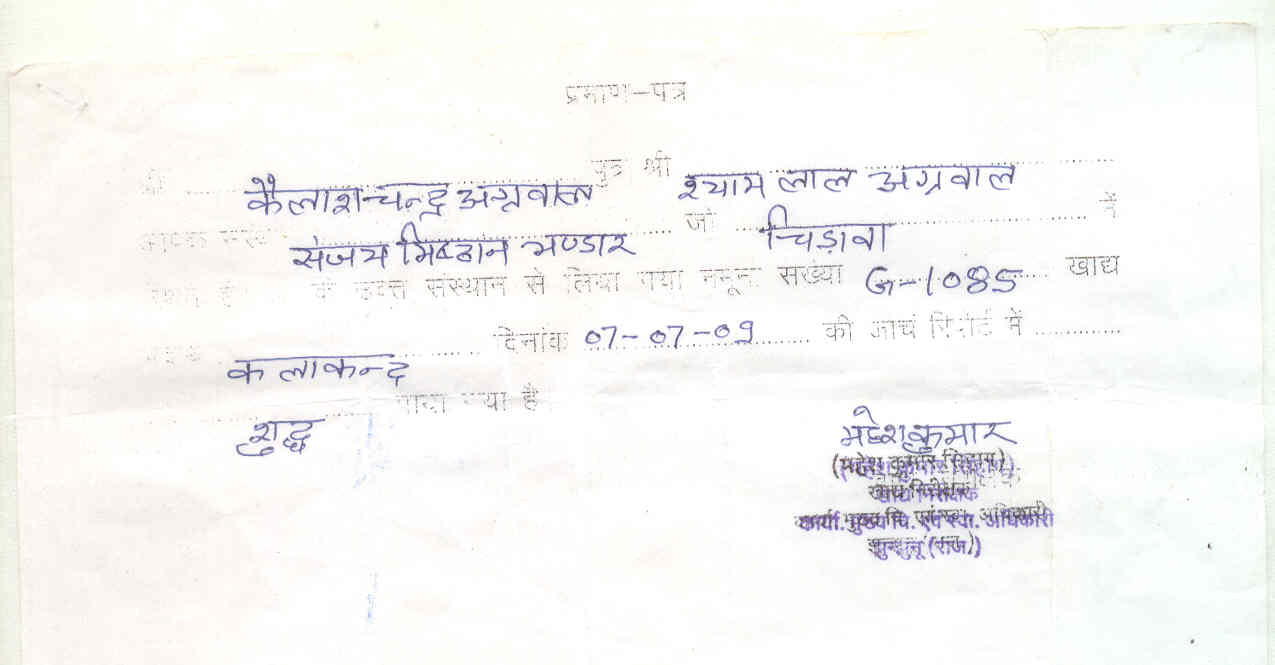 प्रमाण-पत्र
श्री .......... पुत्र श्री ..........
कैलाशचन्द्र अग्रवाल श्याम लाल अग्रवाल
आपके .......... जो .......... में
संजय मिष्ठान भण्डार चिड़ावा
के उक्त संस्थान से लिया गया नमूना संख्या G-1085 खाद्य
दिनांक 07-07-09 की जाचं रिपोर्ट में ..........
कलाकन्द
.......... पाया गया है
शुद्ध
महेशकुमार
(महेश कुमार)
खाद्य निरीक्षक
कार्या. मुख्य चि. एवं स्वा. अधिकारी
झुन्झुनू (राज)